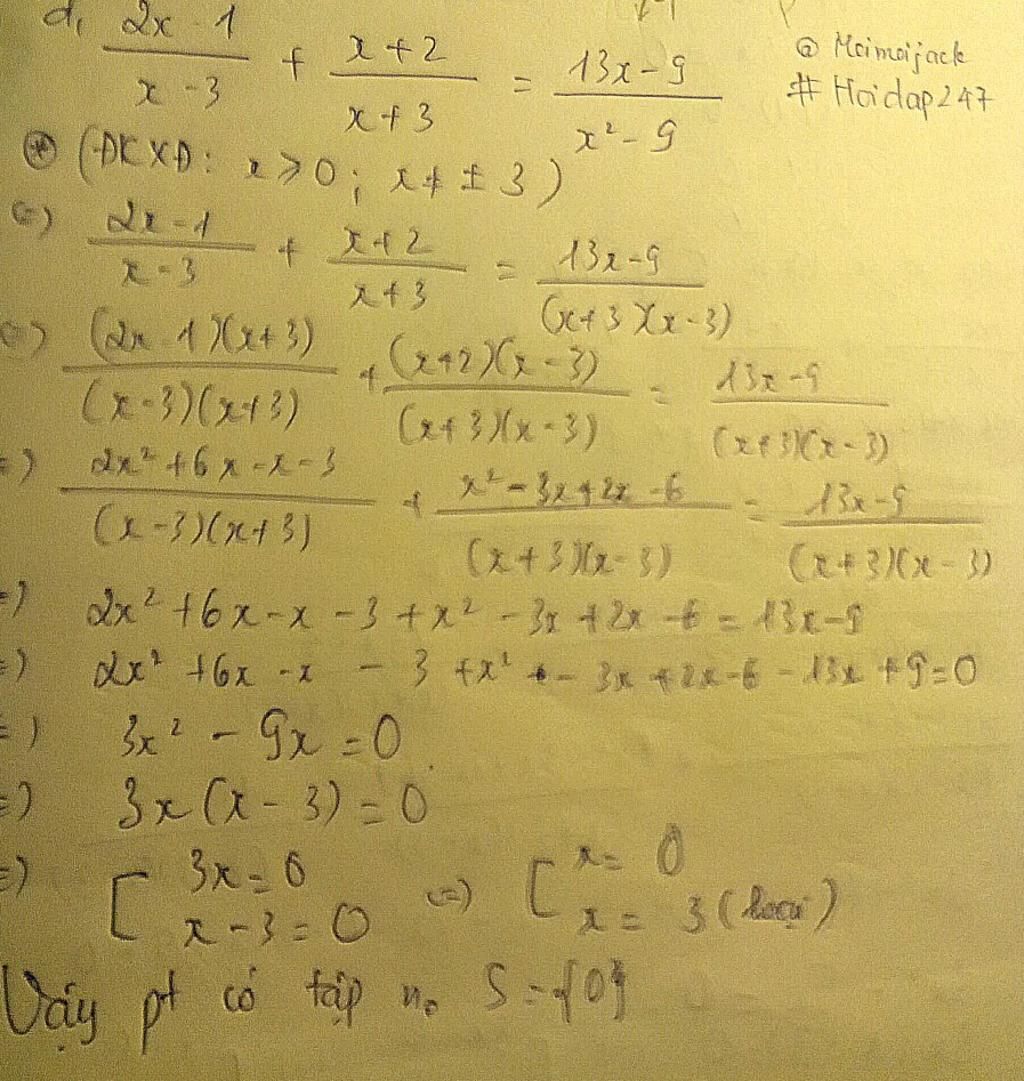 d, (2x - 1)/(x - 3) + (x + 2)/(x + 3) = (13x - 9)/(x² - 9)
@ Moimoijack
# Hoidap247
⊛ (ĐKXĐ: x ⩾ 0; x ≠ ± 3)
(=) (2x - 1)/(x - 3) + (x + 2)/(x + 3) = (13x - 9)/((x + 3)(x - 3))
(=) ((2x - 1)(x + 3))/((x - 3)(x + 3)) + ((x + 2)(x - 3))/((x + 3)(x - 3)) = (13x - 9)/((x + 3)(x - 3))
=) (2x² + 6x - x - 3)/((x - 3)(x + 3)) + (x² - 3x + 2x - 6)/((x + 3)(x - 3)) = (13x - 9)/((x + 3)(x - 3))
=) 2x² + 6x - x - 3 + x² - 3x + 2x - 6 = 13x - 9
=) 2x² + 6x - x - 3 + x² - 3x + 2x - 6 - 13x + 9 = 0
=) 3x² - 9x = 0
=) 3x(x - 3) = 0
=) [ 3x = 0 (=) [ x = 0
x - 3 = 0 x = 3 (loại)
Vậy pt có tập no S = {0}